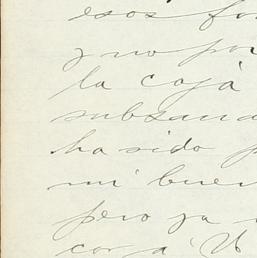 esos fo
y no por
la caja
subsana
ha sido p
mi buen
pero ya
cor a V